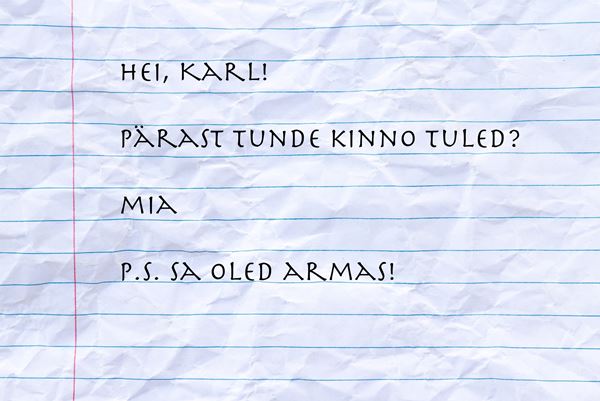 Hei, Karl!
Pärast tunde kinno tuled?
Mia
P.S. Sa oled armas!